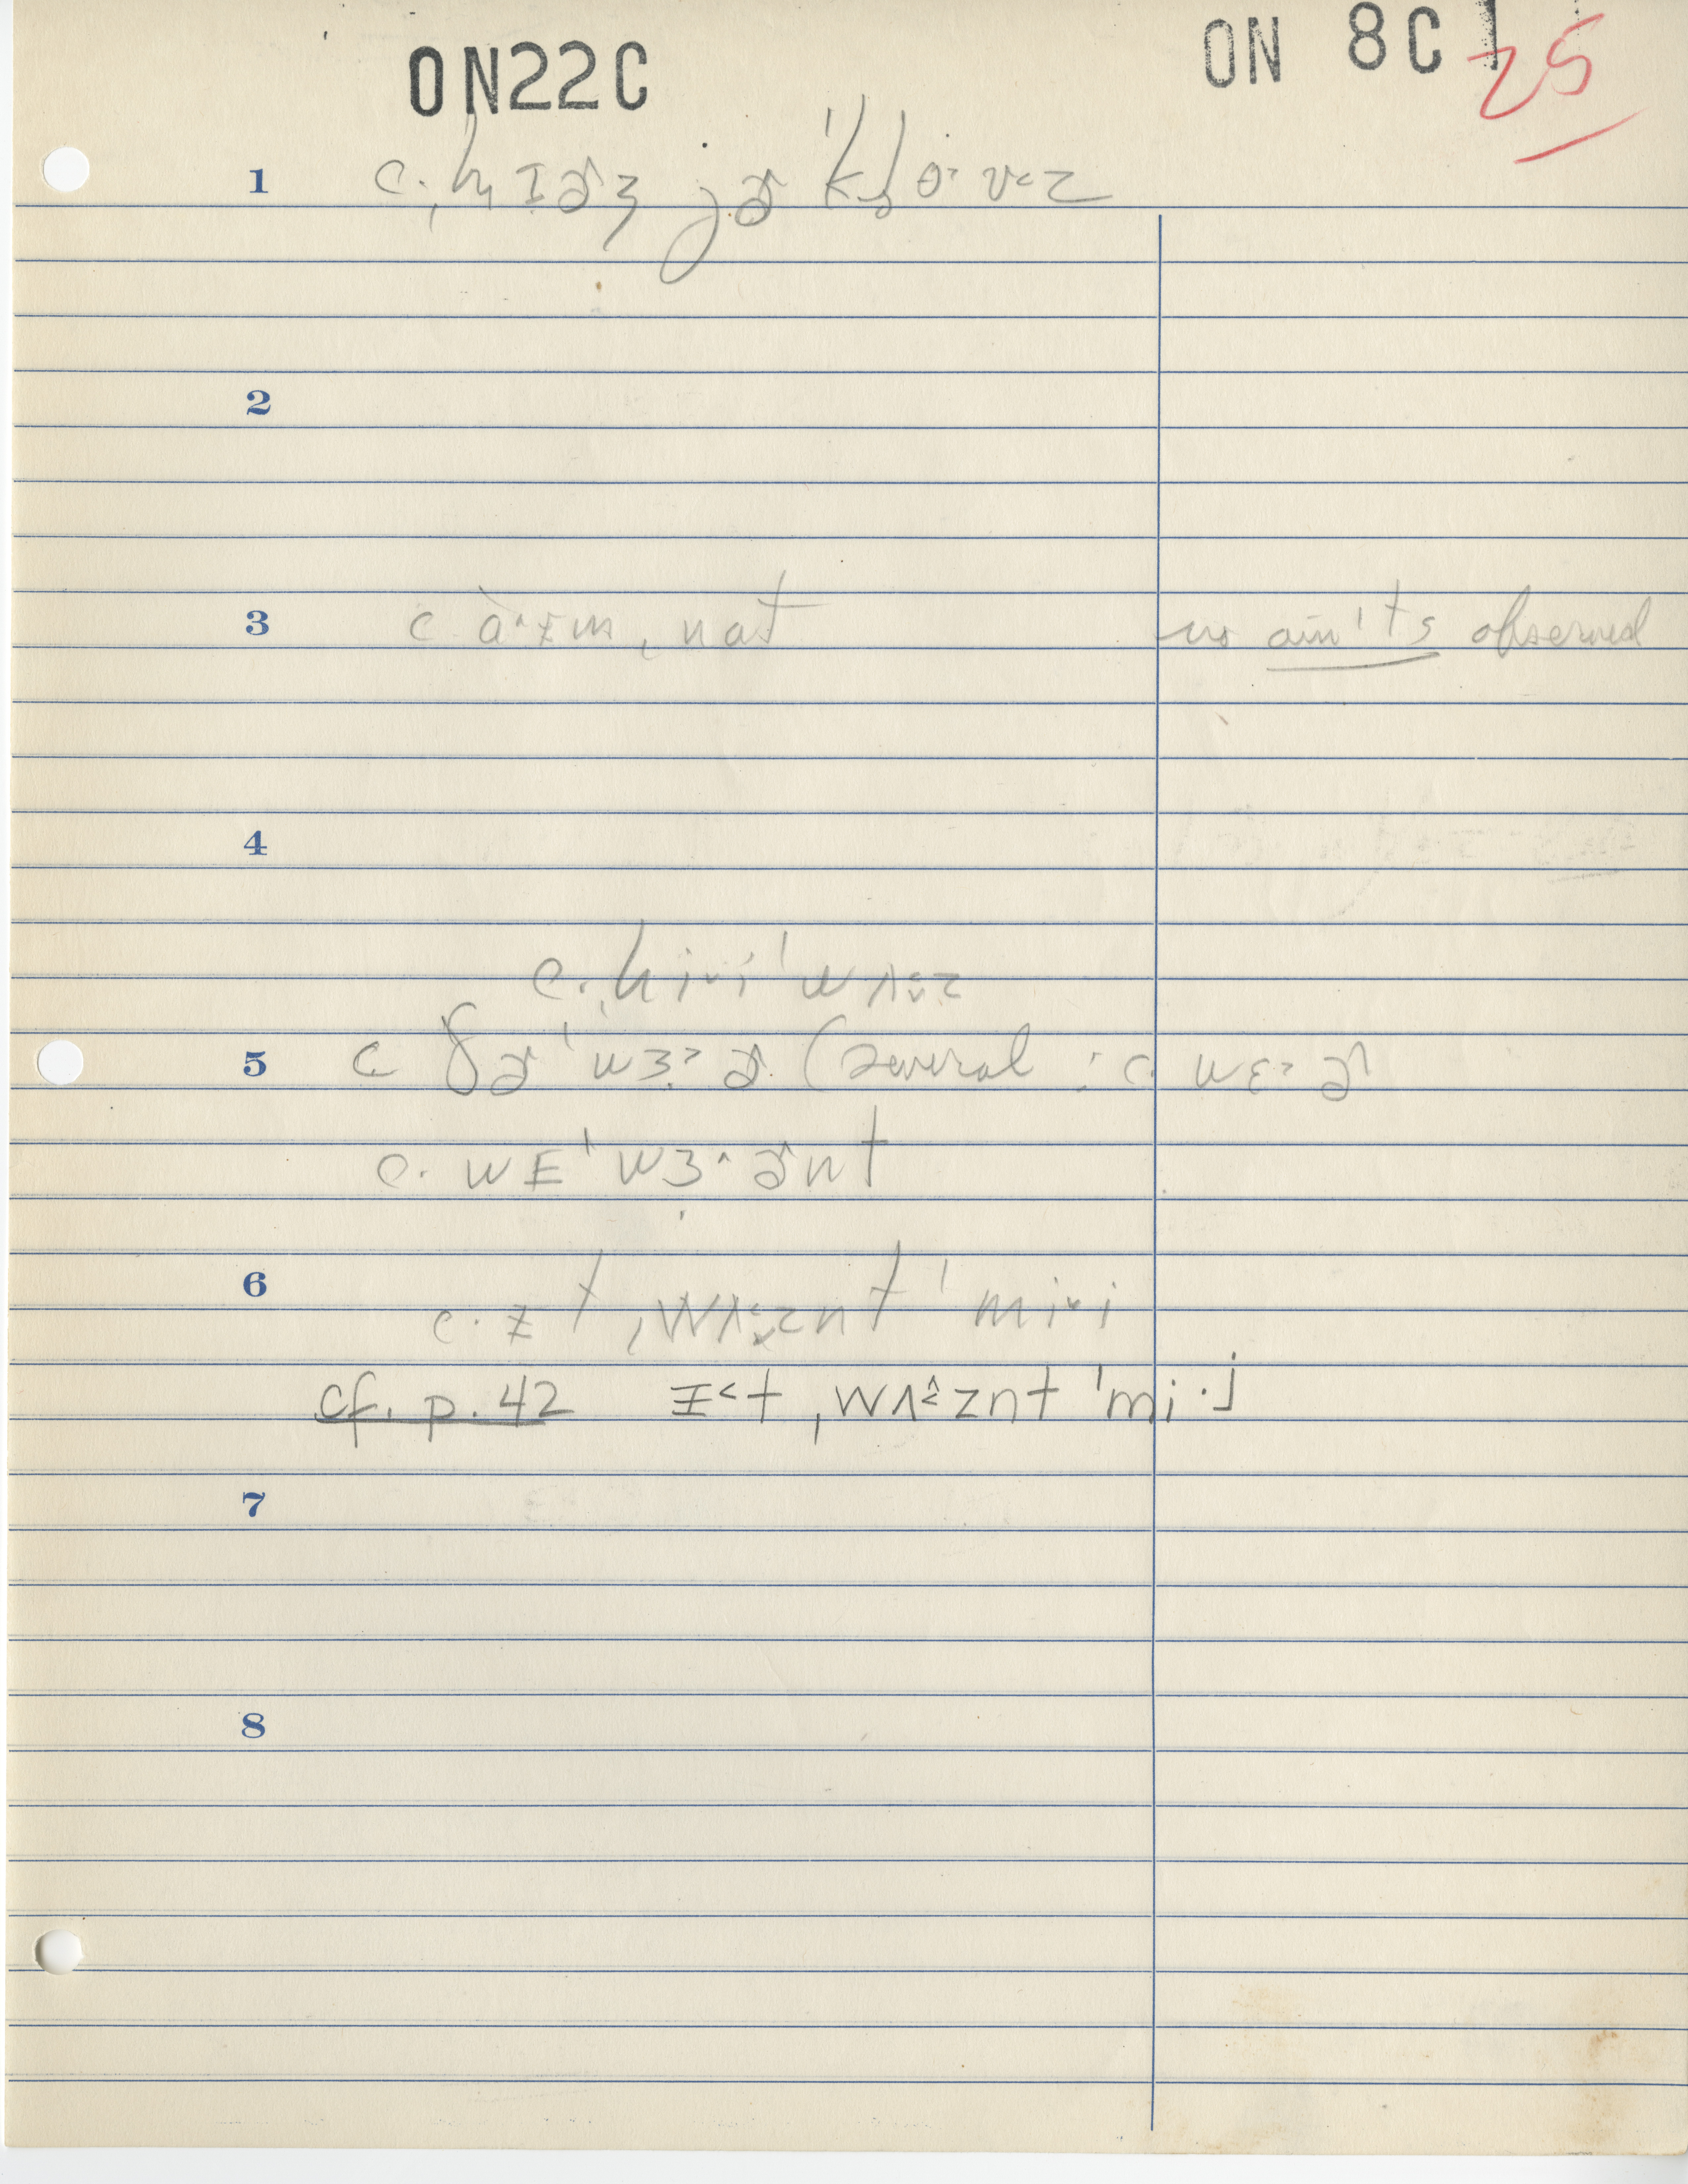 ON22C
ON 8C1 25
1 c. ˌhɪɚz jɚ ˈkloˑvz
2
3 c ɑˑɪm ˌnɑt no ain't's observed
4
c. hiˑi ˈwʌz
5 c ðɚ ˈwɜˑɚ (several : c. wɛˑɚ
c. wɛ ˈwɜˑɚnt
6 c. ɪt ˌwʌznt ˈmiˑi
cf. p. 42 ɪt ˌwʌznt ˈmiˑj
7
8